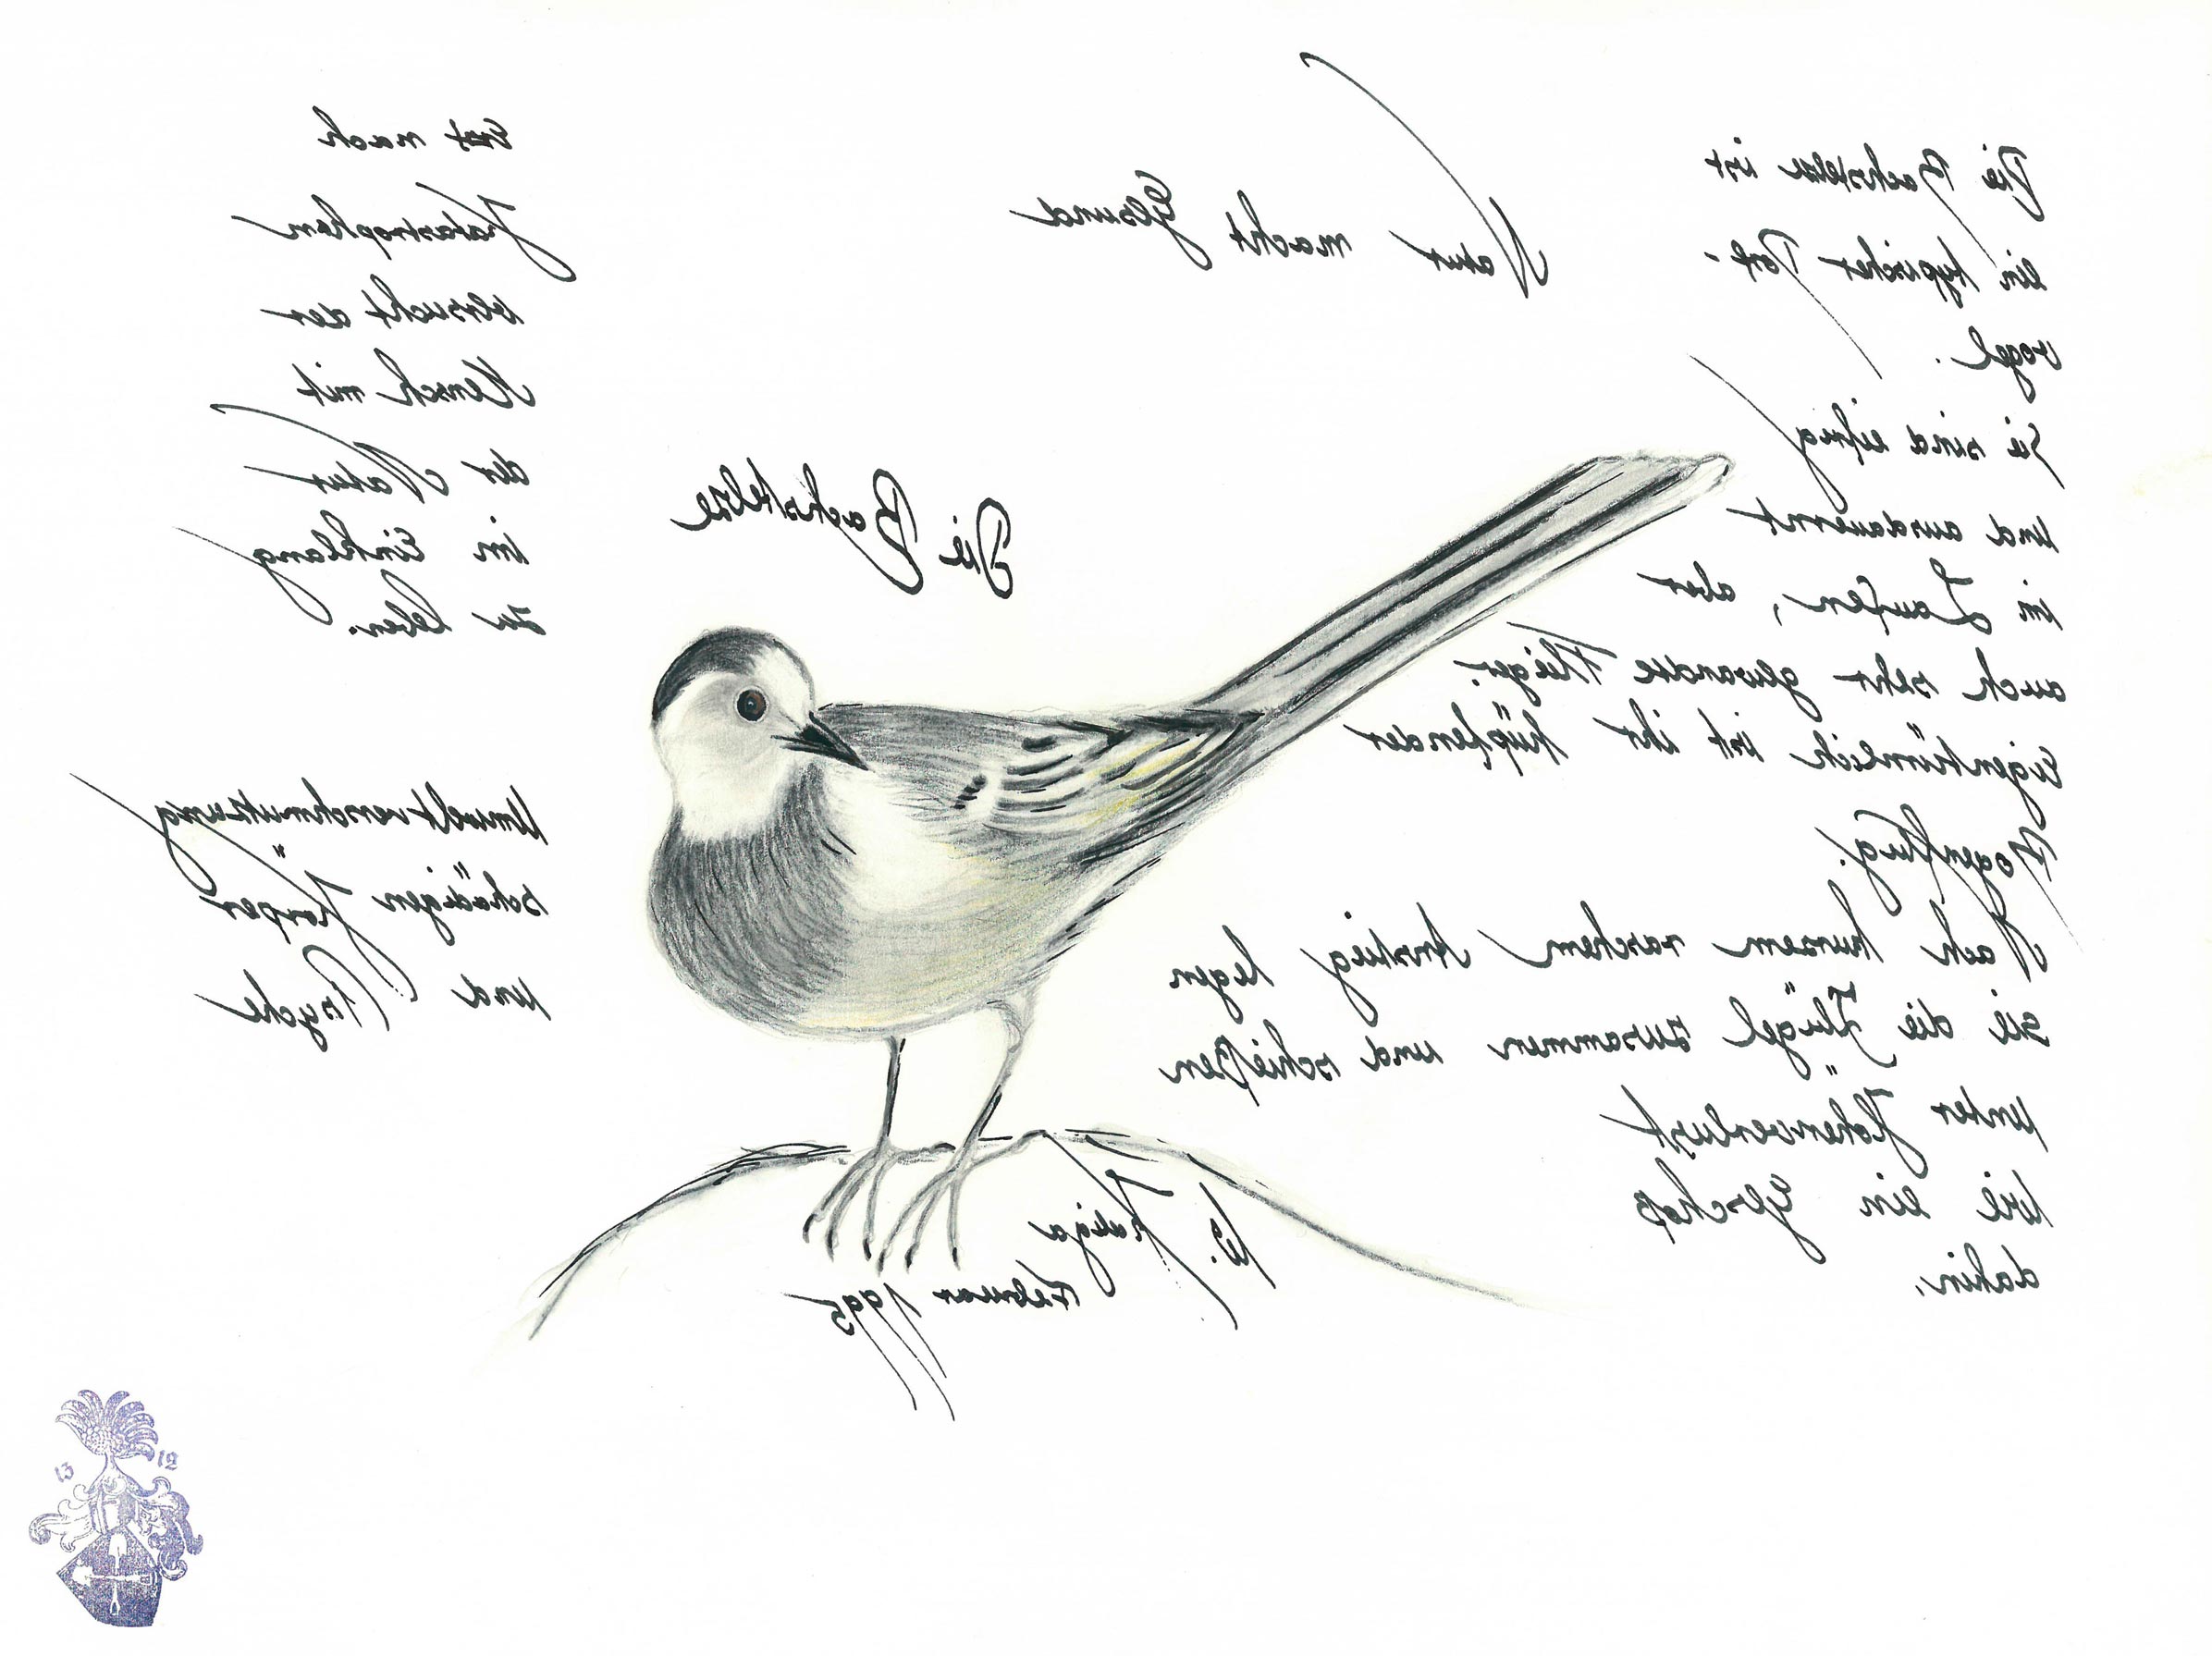 Die Bachstelze ist
ein typischer Dorf-
vogel.
Sie sind eifrig
und ausdauernt
im Laufen, aber
auch sehr gewandte Flieger.
Eigenthümlich ist ihr hüpfender
Bogenflug.
Nach kurzem raschem Anstieg legen
sie die Flügel zusammen und schießen
unter Höhenverlust
wie ein Geschoß
dahin.
Natur macht Gesund
Die Bachstelze
W. Kaliga
Februar 1995
Erst nach
Katastrophen
versucht der
Mensch mit
der Natur
im Einklang
zu leben.
Umweltverschmutzung
schädigen Körper
und Psyche
13 12